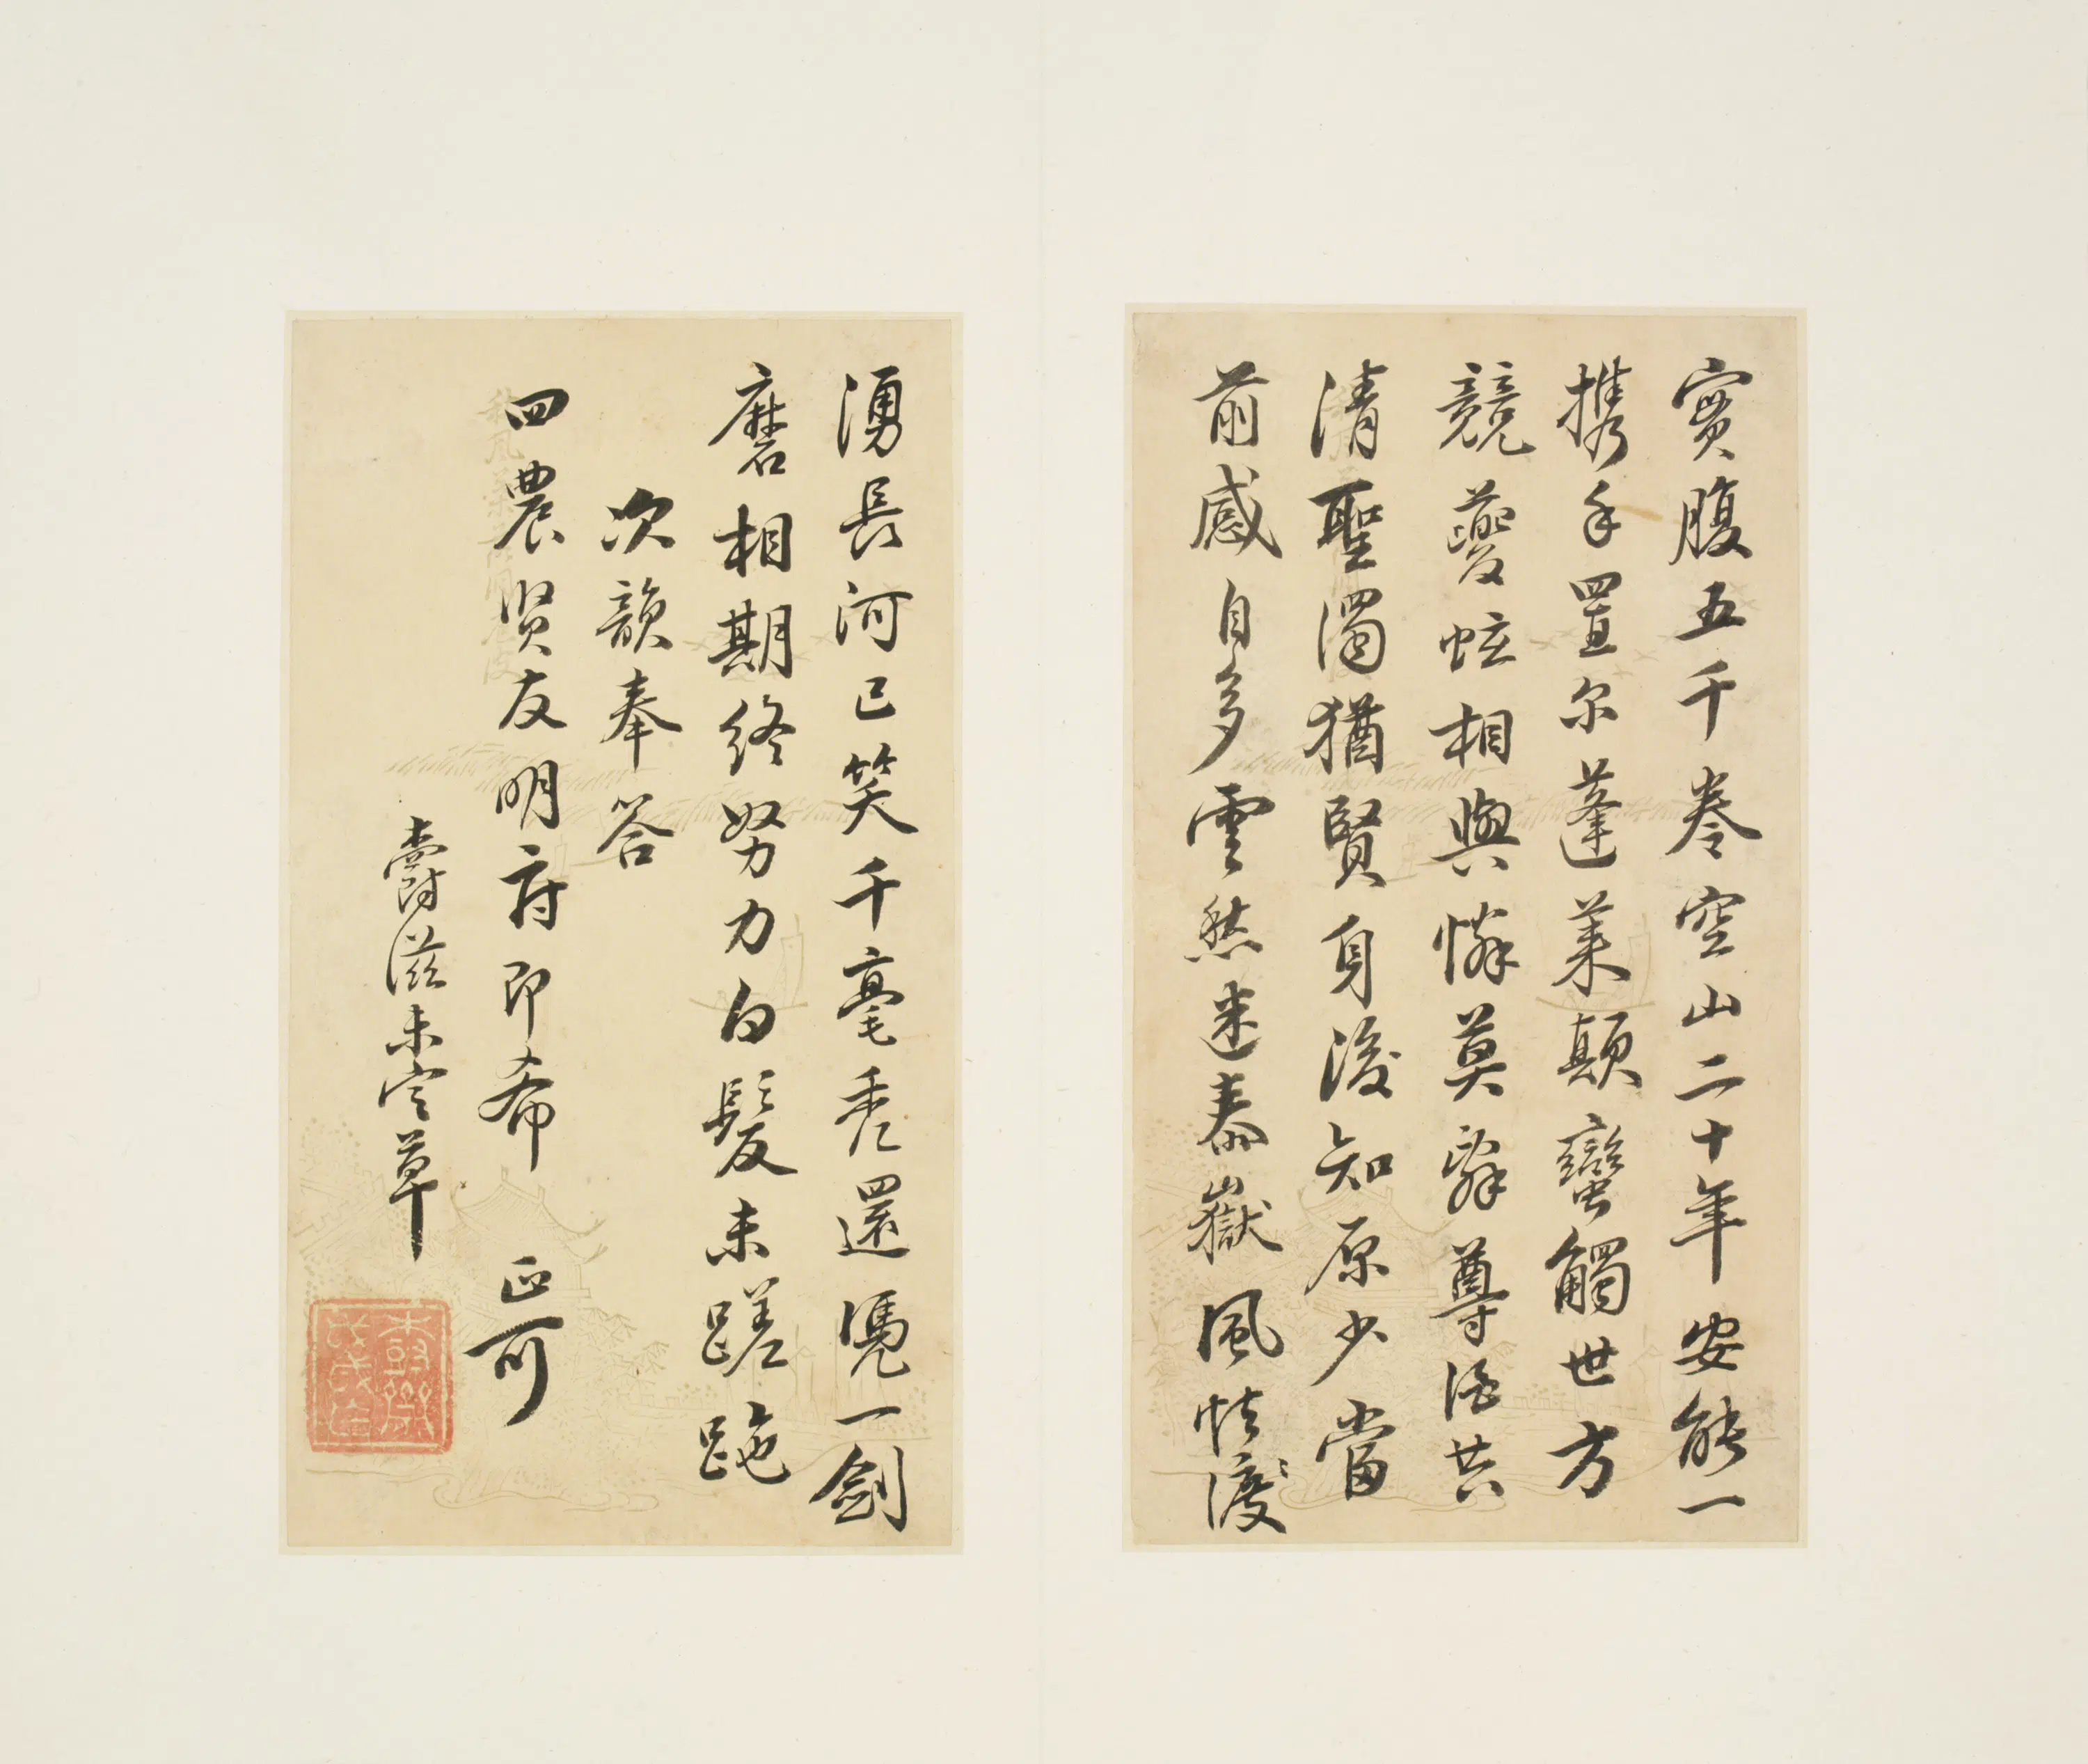 實腹五千卷空山二十年安能一
携手置尔蓬萊顛蠻觸世方
競夔蚿相與憐莫辭尊酒共
清聖濁猶賢身後知原少當
前感自多雲愁迷泰嶽風怯渡
湧長河已笑千毫禿還憑一劍
磨相期終努力白髮未蹉跎
次韻奉答
四農賢友明府即希 正可
爵滋未定草